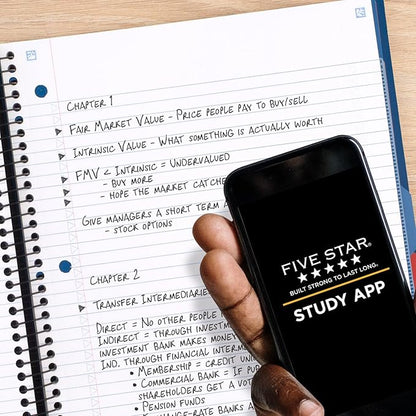 CHAPTER 1
FAIR MARKET VALUE - PRICE PEOPLE PAY TO BUY/SELL
INTRINSIC VALUE - WHAT SOMETHING IS ACTUALLY WORTH
FMV < INTRINSIC = UNDERVALUED
- BUY MORE
- HOPE THE MARKET CATCHE
GIVE MANAGERS A SHORT TERM
- STOCK OPTIONS
CHAPTER 2
TRANSFER INTERMEDIARIE
DIRECT = NO OTHER PEOPLE
INDIRECT = THROUGH INVESTM
INVESTMENT BANK MAKES MONEY
IND. THROUGH FINANCIAL INTERM
• MEMBERSHIP = CREDIT UN
• COMMERCIAL BANK = IF PUB
SHAREHOLDERS GET A VOT
• PENSION FUNDS
BANKS A
FIVE STAR®
★★★★★
BUILT STRONG TO LAST LONG™
STUDY APP